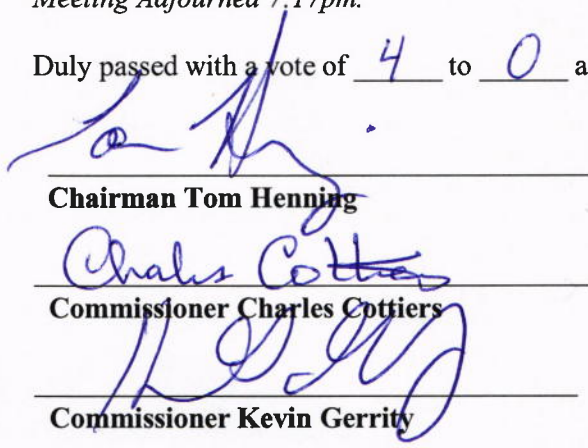 Meeting Adjourned 7:17pm.
Duly passed with a vote of 4 to 0 a
Tom H
Chairman Tom Henning
Charles Cottiers
Commissioner Charles Cottiers
Commissioner Kevin Gerrity